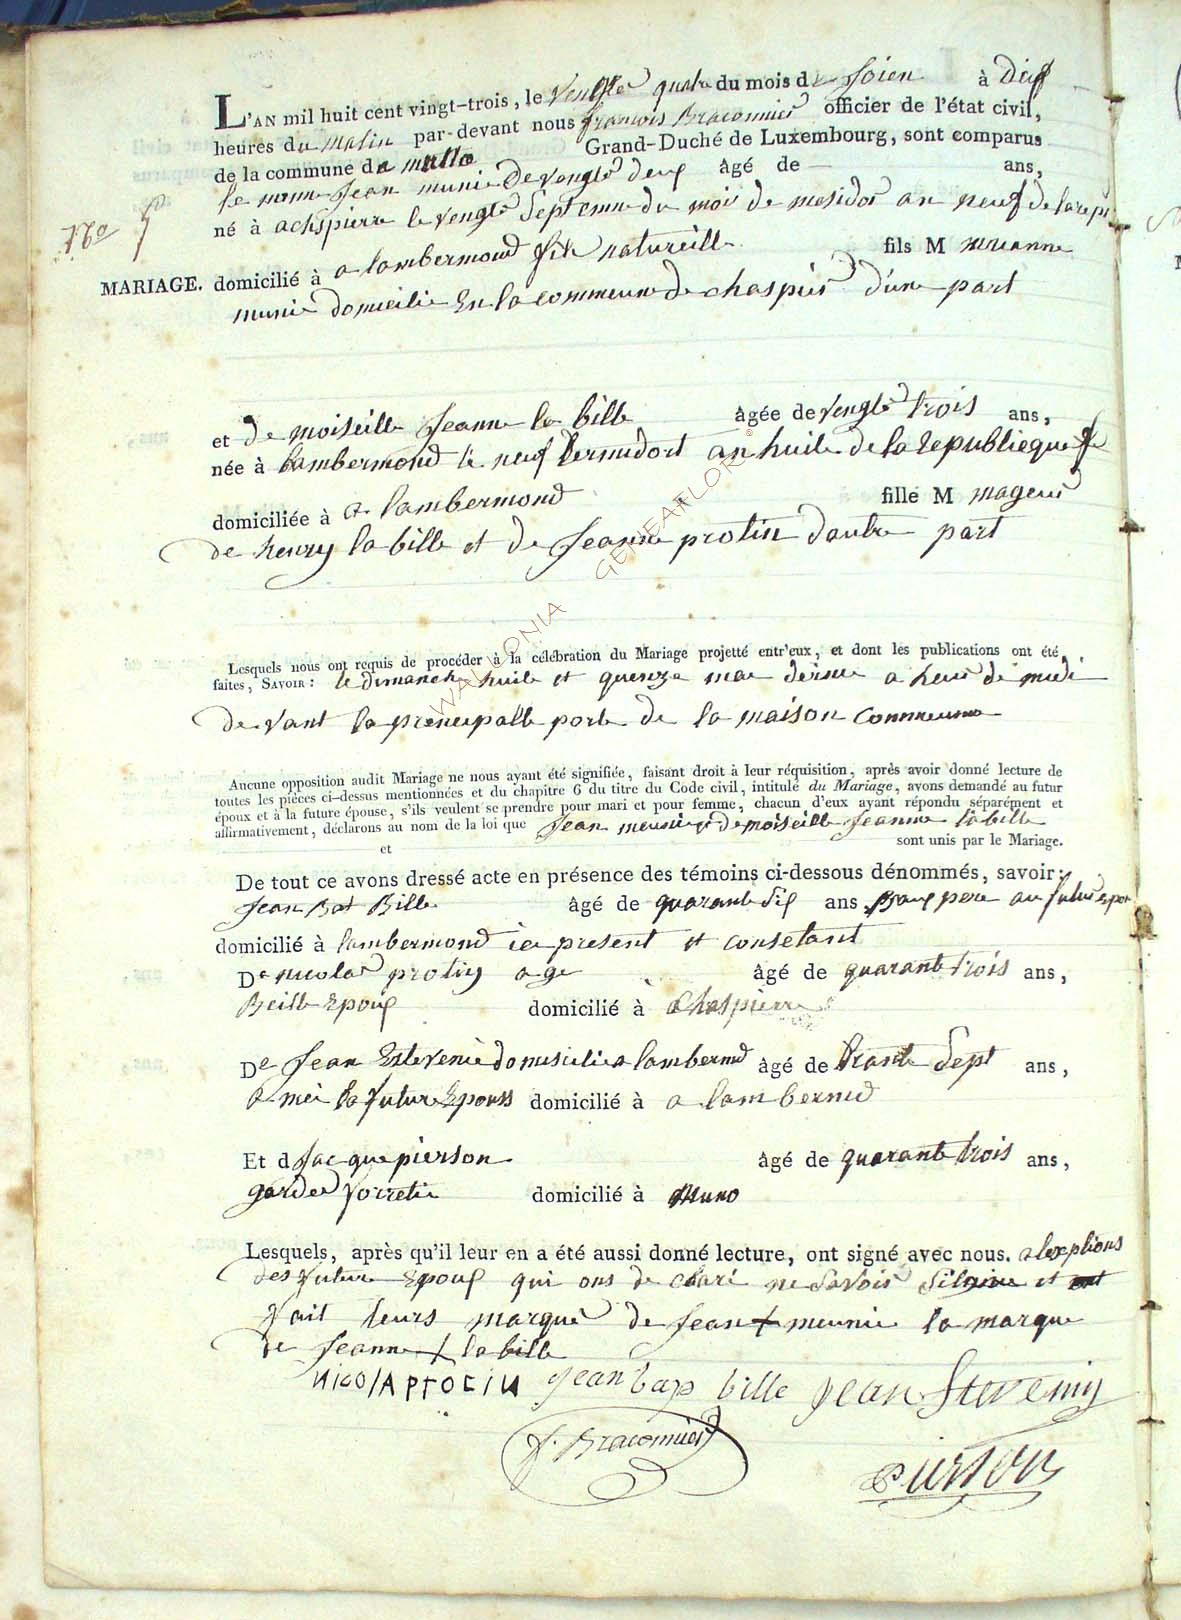 L'AN mil huit cent vingt-trois, le vengte quatre du mois de Joien à dix
heures du matin par-devant nous francois Braconnier officier de l'état civil,
de la commune da Grand-Duché de Luxembourg, sont comparus
le nomme Jean munie de vengte deux âgé de ans,
né à achspierre le vengte Sept du mois de mesidor an neuf de la repu
No 5
MARIAGE. domicilié à a lambermond fils natureille fils M marianne
munie domicilie En la commune de chaspier d'une part
et de moiseille Jeanne la bille âgée de vengte trois ans,
née à lambermond le neuf termidort an huite de la Republieque f
domiciliée à a lambermond fille M mageur
de henry la bille et de Jeanne protin dautre part
Lesquels nous ont requis de procéder à la célébration du Mariage projetté entr'eux, et dont les publications ont été
faites, SAVOIR : le dimanche huite et quenze mae dernie a heur de midi
devant la prencipalle porte de la maison commeune
Aucune opposition audit Mariage ne nous ayant été signifiée, faisant droit à leur réquisition, après avoir donné lecture de
toutes les pièces ci-dessus mentionnées et du chapitre 6 du titre du Code civil, intitulé du Mariage, avons demandé au futur
époux et à la future épouse, s'ils veulent se prendre pour mari et pour femme, chacun d'eux ayant répondu séparément et
affirmativement, déclarons au nom de la loi que Jean meunier et demoiseille Jeanne labille
et sont unis par le Mariage.
De tout ce avons dressé acte en présence des témoins ci-dessous dénommés, savoir:
Jean Bat Bille âgé de quarante Six ans Baux pere au futur epou
domicilié à lambermond ier present et consetant
De nicolas protin age âgé de quarante trois ans,
Beille Epoux domicilié à Chaspierre
De Jean Estevenie domicilie a lambermd âgé de trante Sept ans,
a mei la future Epouss domicilié à a lambermd
Et d Jacque pierson âgé de quarante trois ans,
gardes forretie domicilié à Muno
Lesquels, après qu'il leur en a été aussi donné lecture, ont signé avec nous. alexplions
des future Epoux qui ons de claré ne savoir Silgnire et
fait leurs marque de Jean + meunie la marque
de Jeanne + la bille
NICOLA PROTIN Jean bap bille Jean Stevenin
f. Braconnier
Pierson
WALLONIA GENEAFLOR